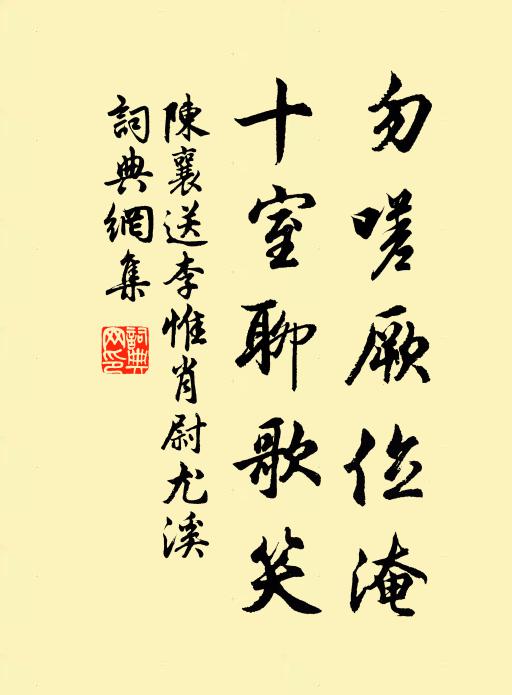 勿嗟厥位淹
十室聊歌笑
陳襄送李惟肖尉尤溪
詞典網集
詞典網印